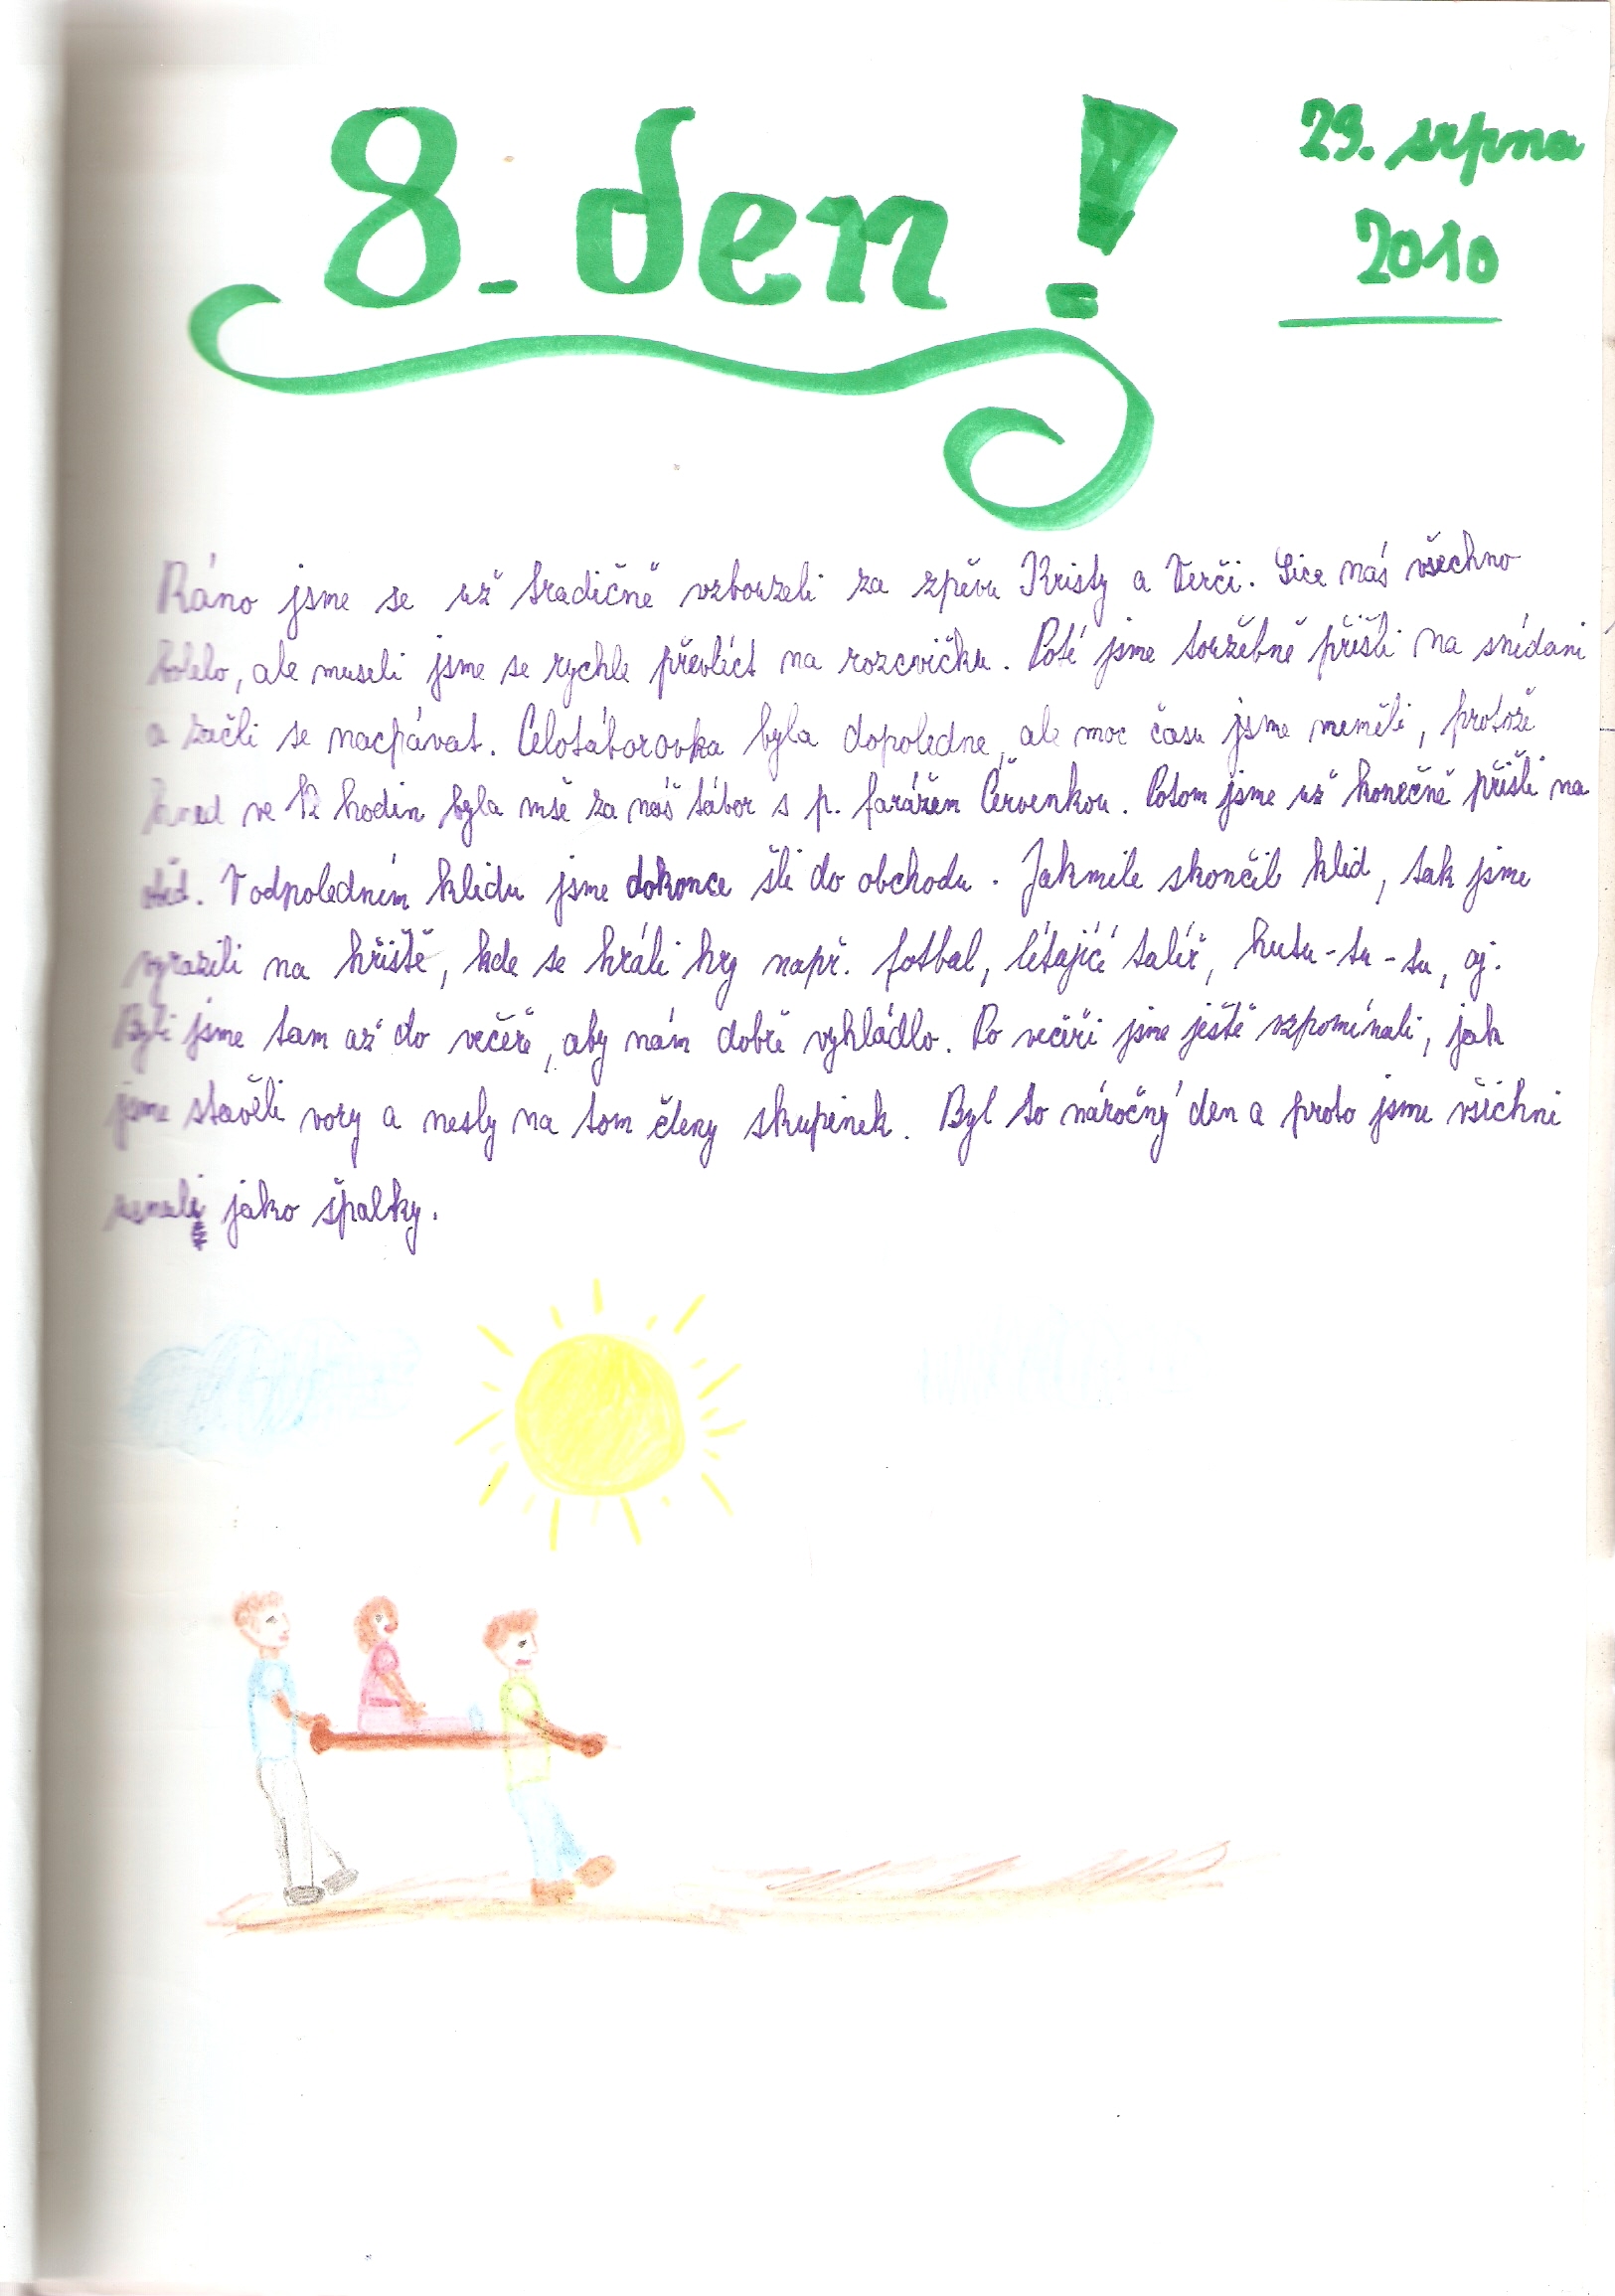 8. den!
29. srpna
2010
Ráno jsme se už tradičně vzbouzeli za zpěvu Kristy a Verči. Sice nás všechno
bolelo, ale museli jsme se rychle převlíct na rozcvičku. Poté jsme soržebně přišli na snídani
a začli se nacpávat. Celotáborovka byla dopoledne, ale moc času jsme neměli, protože
hned ve 12 hodin byla mše za náš tábor s p. farářem Červenkou. Potom jsme už konečně přišli na
oběd. V odpoledním klidu jsme dokonce šli do obchodu. Jakmile skončil klid, tak jsme
vyrazili na hřiště, kde se hráli hry např. fotbal, lítající talíř, kutu-tu-tu, aj.
Byli jsme tam až do večeře, aby nám dobře vyhládlo. Po večeři jsme ještě vzpomínali, jak
jsme stavěli vory a nesly na tom členy skupinek. Byl to náročný den a proto jsme všichni
usnuli jako špalky.